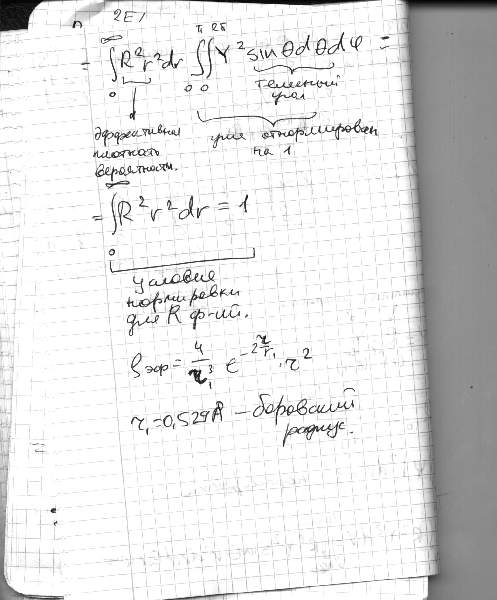 2E1
= ∫₀^∞ R²r²dr ∫₀^π∫₀^2π Y² sinθdθdφ =
телесный
угол
эффективная
плотность
вероятности.
уже отнормирован
на 1
= ∫₀^∞ R²r²dr = 1
условие
нормировки
для R ф-ий.
ρэф = 4/r₁³ e^(-2r/r₁) · r²
r₁=0,529Å – боровский
радиус.